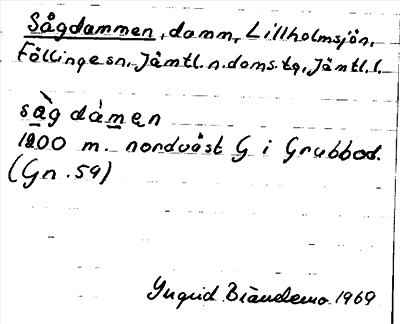 Sågdammen, damm, Lillholmsjön,
Föllinge sn, Jämtl. n. doms. tg, Jämtl. l.
såg dàmen
1200 m. nordväst G i Grubbod.
(Gn. 59)
Yngrid 1969